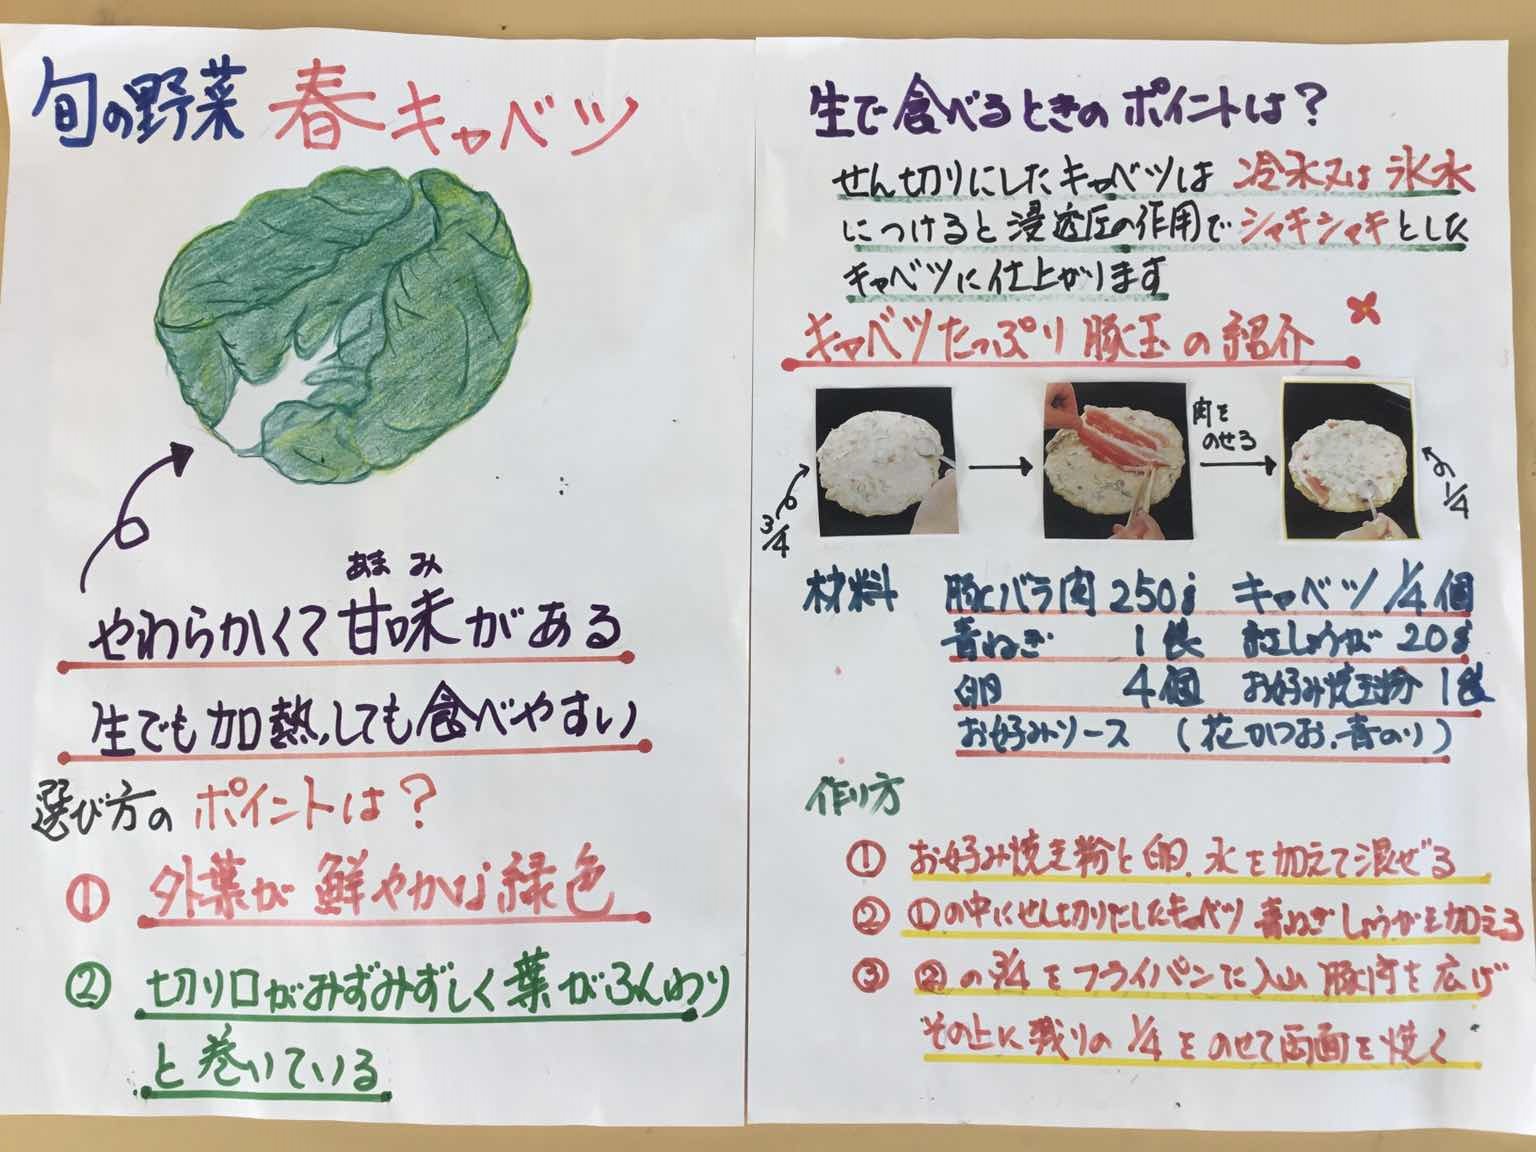 旬の野菜 春キャベツ
あまみ
やわらかくて甘味がある
生でも加熱しても食べやすい
選び方のポイントは?
① 外葉が鮮やかな緑色
② 切り口がみずみずしく葉がふんわり
と巻いている
生で食べるときのポイントは?
せん切りにしたキャベツは冷水又は氷水
につけると浸透圧の作用でシャキシャキとした
キャベツに仕上がります
キャベツたっぷり豚玉の紹介
3/4
肉を
のせる
1/4
材料 豚バラ肉 250g キャベツ 1/4個
青ねぎ 1袋 紅しょうが 20g
卵 4個 お好み焼き粉 1袋
お好みソース (花かつお、青のり)
作り方
① お好み焼き粉と卵、水を加えて混ぜる
② ①の中にせん切りにしたキャベツ 青ねぎ しょうがを加える
③ ②の3/4をフライパンに入れ 豚肉を広げ
その上に残りの1/4をのせて両面を焼く